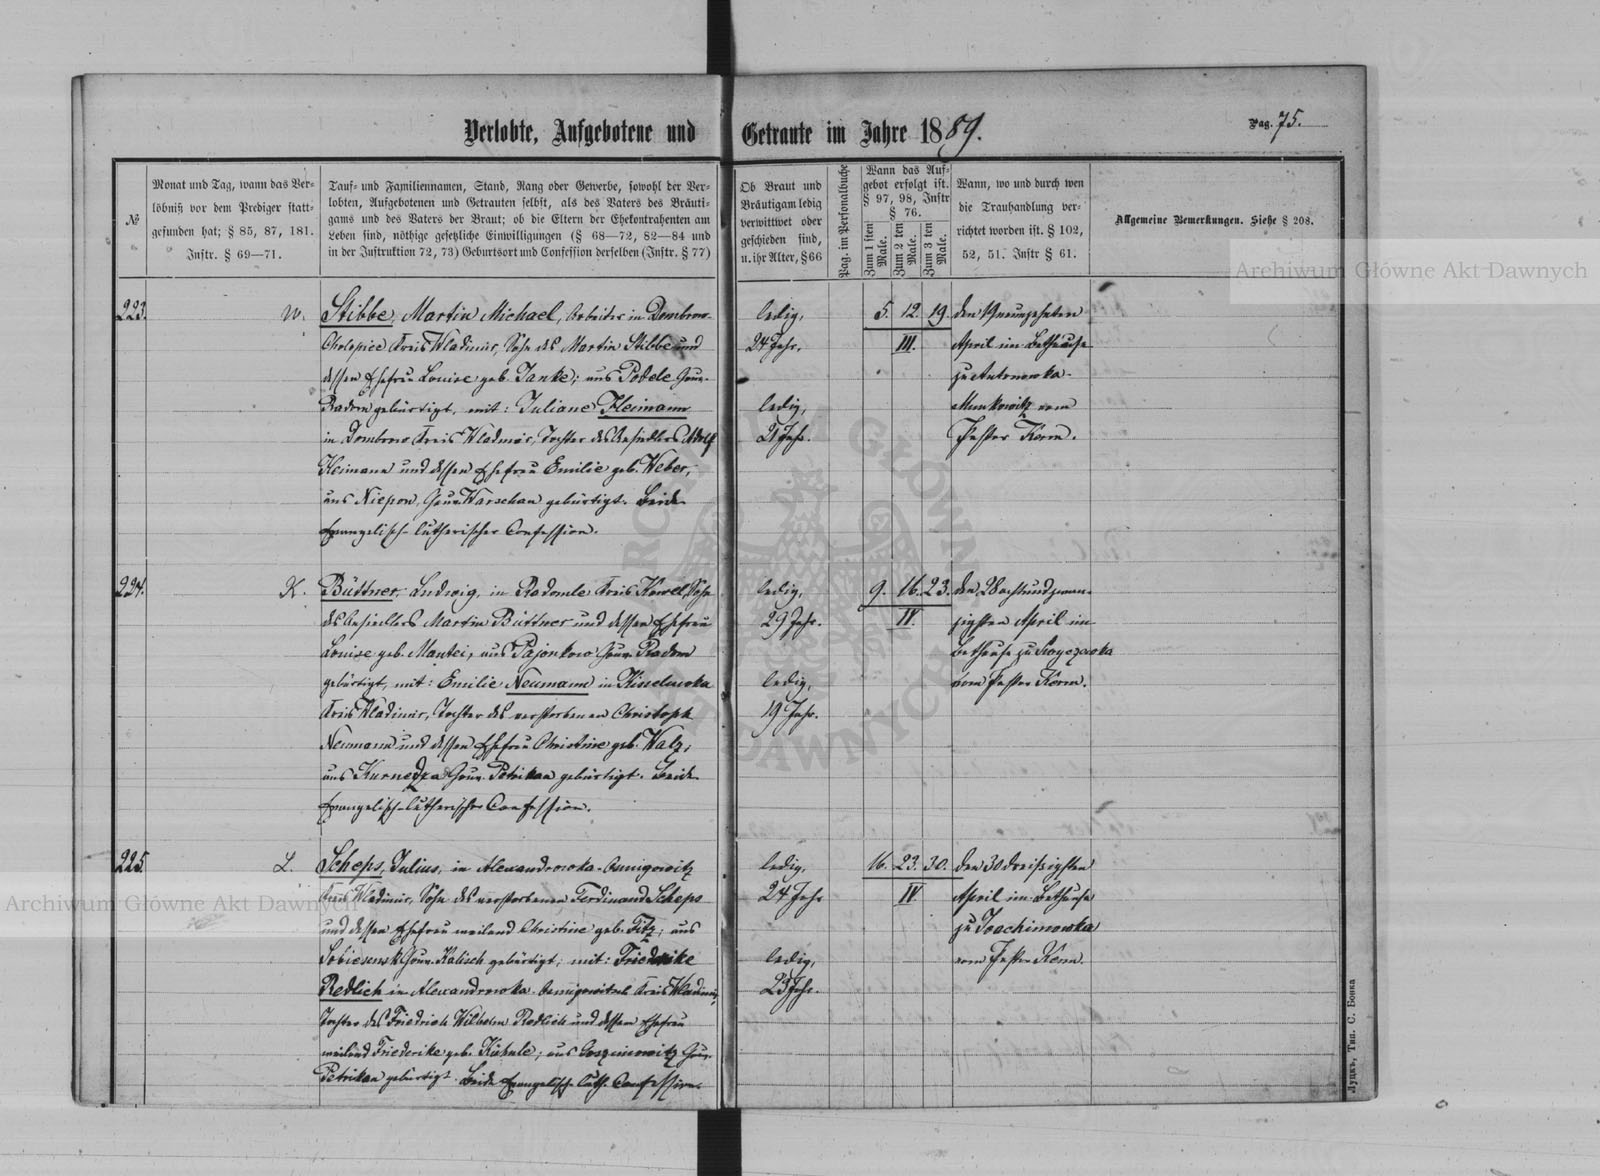 Verlobte, Aufgebotene und Getraute im Jahre 1889.
Pag. 75.
№
Monat und Tag, wann das Ver-
löbniß vor dem Prediger statt-
gefunden hat; § 85, 87, 181.
Instr. § 69—71.
Tauf- und Familiennamen, Stand, Rang oder Gewerbe, sowohl der Ver-
lobten, Aufgebotenen und Getrauten selbst, als des Vaters des Bräuti-
gams und des Vaters der Braut; ob die Eltern der Ehekontrahenten am
Leben sind, nöthige gesetzliche Einwilligungen (§ 68—72, 82—84 und
in der Instruktion 72, 73) Geburtsort und Confession derselben (Instr. § 77)
Ob Braut und
Bräutigam ledig
verwittwet oder
geschieden sind,
u. ihr Alter, § 66
Pag. im Personalbuche
Wann das Auf-
gebot erfolgt ist.
§ 97, 98, Instr
§ 76.
Zum 1 sten
Male.
Zum 2 ten
Male.
Zum 3 ten
Male.
Wann, wo und durch wen
die Trauhandlung ver-
richtet worden ist. § 102,
52, 51. Instr § 61.
Allgemeine Bemerkungen. Siehe § 208.
Archiwum Główne Akt Dawnych
223.
W.
Stibbe, Martin Michael, Arbeiter in Dombrow-
Cholopice Kreis Wladimir, Sohn des Martin Stibbe und
dessen Ehefrau Louise geb. Janke; aus Podele Gouv.
Radom gebürtigt, mit: Juliane Heimann
in Dombrow Kreis Wladimir, Tochter des Ansiedlers Adolf
Heimann und dessen Ehefrau Emilie geb. Weber,
aus Niepon, Gouv. Warschau gebürtigt. Beide
Evangelisch-lutherischer Confession.
ledig,
24 Jahr.
ledig,
21 Jahr.
5. 12. 19.
III.
den Neunzehnten
April im Bethause
zu Antonowka-
Munkowitz vom
Pastor Kerm.
224.
K.
Büttner, Ludwig, in Radomle Kreis Kowel, Sohn
des Ansiedlers Martin Büttner und dessen Ehefrau
Louise geb. Mantei, aus Pajonkow Gouv. Radom
gebürtigt, mit: Emilie Neumann in Kisselewka
Kreis Wladimir, Tochter des verstorbenen Christoph
Neumann und dessen Ehefrau Christine geb. Walz,
aus Kurnedza Gouv. Petrikau gebürtigt. Beide
Evangelisch-lutherischer Confession.
ledig,
29 Jahr.
ledig,
19 Jahr.
9. 16. 23.
IV.
den 28 achtundzwan-
zigsten April im
Bethause zu
vom Pastor Kerm.
225.
L.
Scheps, Julius, in Alexandrowka-
Kreis Wladimir, Sohn des verstorbenen Ferdinand Scheps
und dessen Ehefrau weiland Christine geb. Fitz; aus
Sobiesensk Gouv. Kalisch gebürtigt; mit: Friedrike
Redlich in Alexandrowka Kreis Wladimir,
Tochter des Friedrich Wilhelm Redlich und dessen Ehefrau
weiland Friederike geb. Kühnle; aus Gouv.
Petrikau gebürtigt. Beide Evangelisch-luth. Confession.
ledig,
24 Jahr
ledig,
23 Jahr.
16. 23. 30.
IV
den 30 dreißigsten
April im Bethause
zu Joachimowka
vom Pastor Kerm.
Archiwum Główne Akt Dawnych
ARCHIWUM GŁÓWNE AKT DAWNYCH
Луцкъ, Тип. С. Бокка